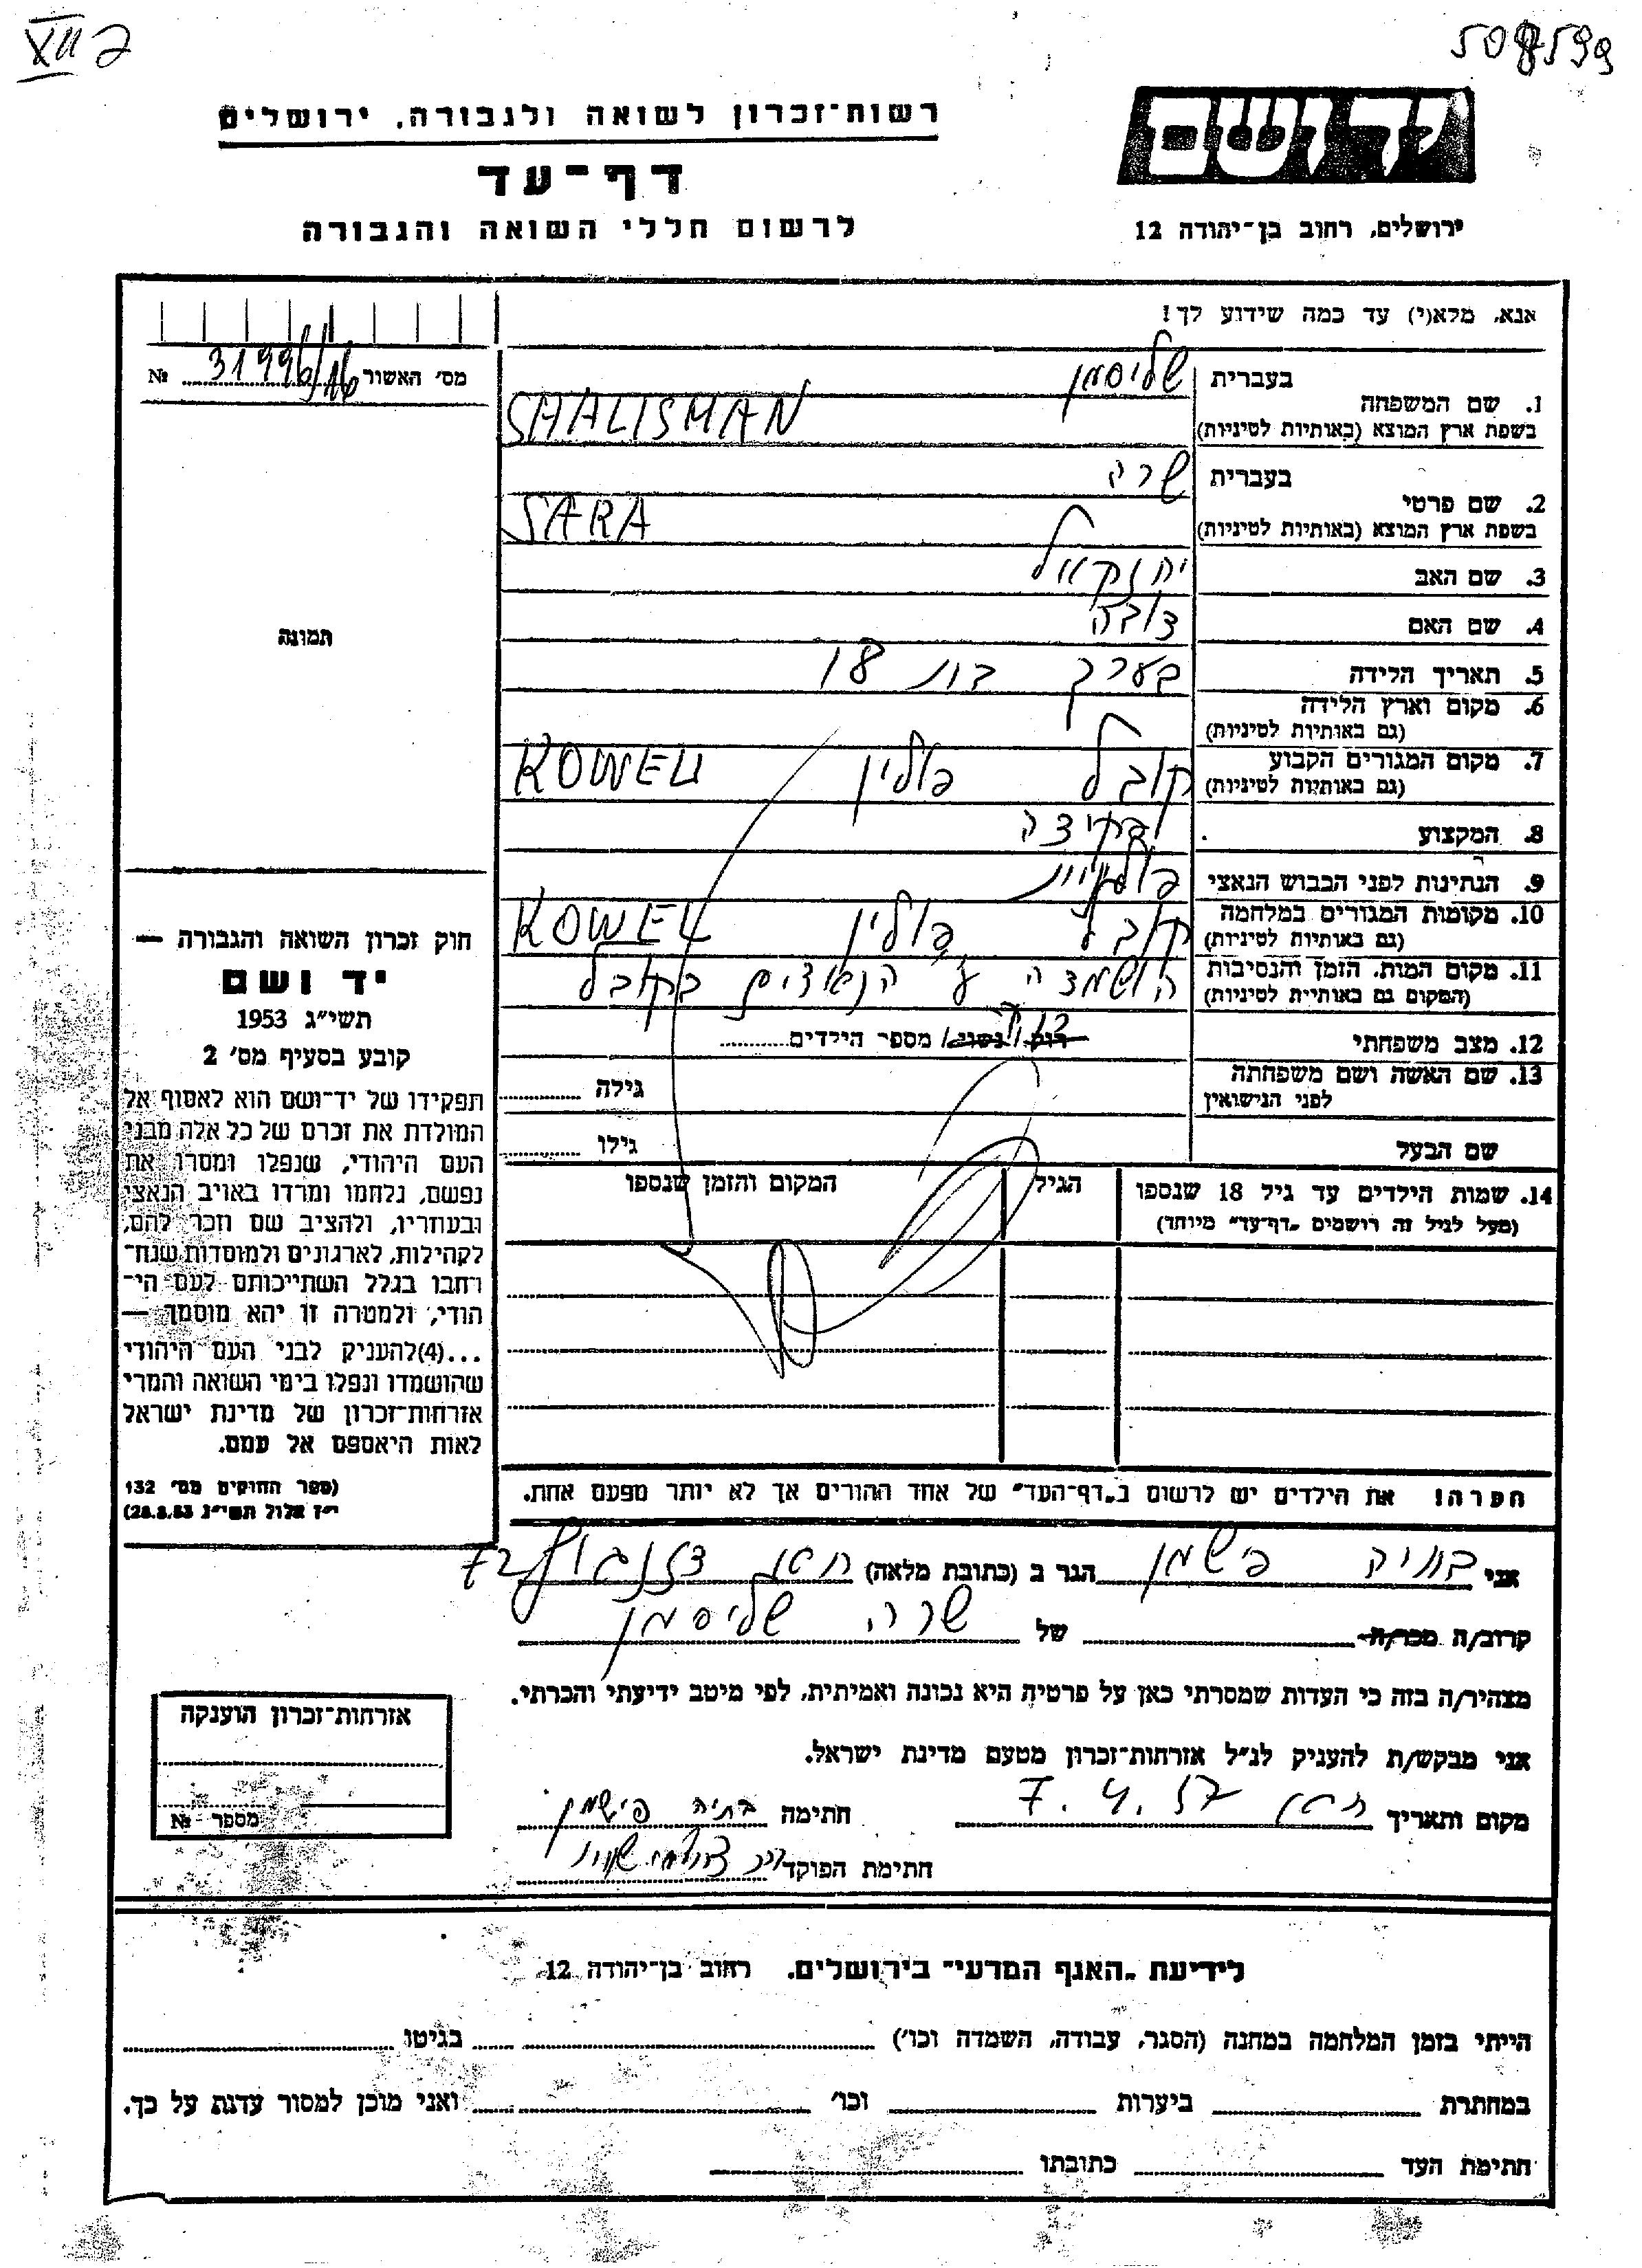 XII ג
508599
יד ושם
ירושלים, רחוב בן־יהודה 12
רשות־זכרון לשואה ולגבורה, ירושלים
דף־עד
לרשום חללי השואה והגבורה
אנא, מלא(י) עד כמה שידוע לך!
מס׳ האשור 31996/16 №
בעברית שליסמן
1. שם המשפחה
בשפת ארץ המוצא (באותיות לטיניות) SHALISMAN
בעברית שרה
2. שם פרטי
בשפת ארץ המוצא (באותיות לטיניות) SARA
3. שם האב יחזקאל
4. שם האם
5. תאריך הלידה בערך בת 18
6. מקום וארץ הלידה
(גם באותיות לטיניות)
7. מקום המגורים הקבוע קובל פולין KOWEL
(גם באותיות לטיניות)
8. המקצוע
9. הנתינות לפני הכבוש הנאצי פולנית
10. מקומות המגורים במלחמה קובל פולין KOWEL
(גם באותיות לטיניות)
11. מקום המות, הזמן והנסיבות הושמדה ע״י הנאצים בקובל
(המקום גם באותיות לטיניות)
12. מצב משפחתי רווק/נשוי/ מספר הילדים
13. שם האשה ושם משפחתה גילה
לפני הנישואין
שם הבעל גילו
14. שמות הילדים עד גיל 18 שנספו הגיל המקום והזמן שנספו
(מעל לגיל זה רושמים „דף־עד״ מיוחד)
הערה! את הילדים יש לרשום ב„דף־העד״ של אחד ההורים אך לא יותר מפעם אחת.
תמונה
חוק זכרון השואה והגבורה —
יד ושם
תשי״ג 1953
קובע בסעיף מס׳ 2
תפקידו של יד־ושם הוא לאסוף אל
המולדת את זכרם של כל אלה מבני
העם היהודי, שנפלו ומסרו את
נפשם, נלחמו ומרדו באויב הנאצי
ובעוזריו, ולהציב שם וזכר להם,
לקהילות, לארגונים ולמוסדות שנח־
רבו בגלל השתייכותם לעם הי־
הודי, ולמטרה זו יהא מוסמך —
...(4)להעניק לבני העם היהודי
שהושמדו ונפלו בימי השואה והמרי
אזרחות־זכרון של מדינת ישראל
לאות היאספם אל עמם.
(ספר החוקים מס׳ 132
י״ז אלול תשי״ג 28.8.53)
אני בתיה פישמן הגר ב (כתובת מלאה) 72
קרוב/ה מכר/ה של שרה שליסמן
מצהיר/ה בזה כי העדות שמסרתי כאן על פרטיה היא נכונה ואמיתית, לפי מיטב ידיעתי והכרתי.
אני מבקש/ת להעניק לנ״ל אזרחות־זכרון מטעם מדינת ישראל.
מקום ותאריך 7.4.57 חתימה בתיה פישמן
חתימת הפוקד
אזרחות־זכרון הוענקה
מספר №
לידיעת „האגף המדעי״ בירושלים, רחוב בן־יהודה 12
הייתי בזמן המלחמה במחנה (הסגר, עבודה, השמדה וכו׳) בגיטו
במחתרת ביערות וכו׳ ואני מוכן למסור עדות על כך.
חתימת העד כתובתו